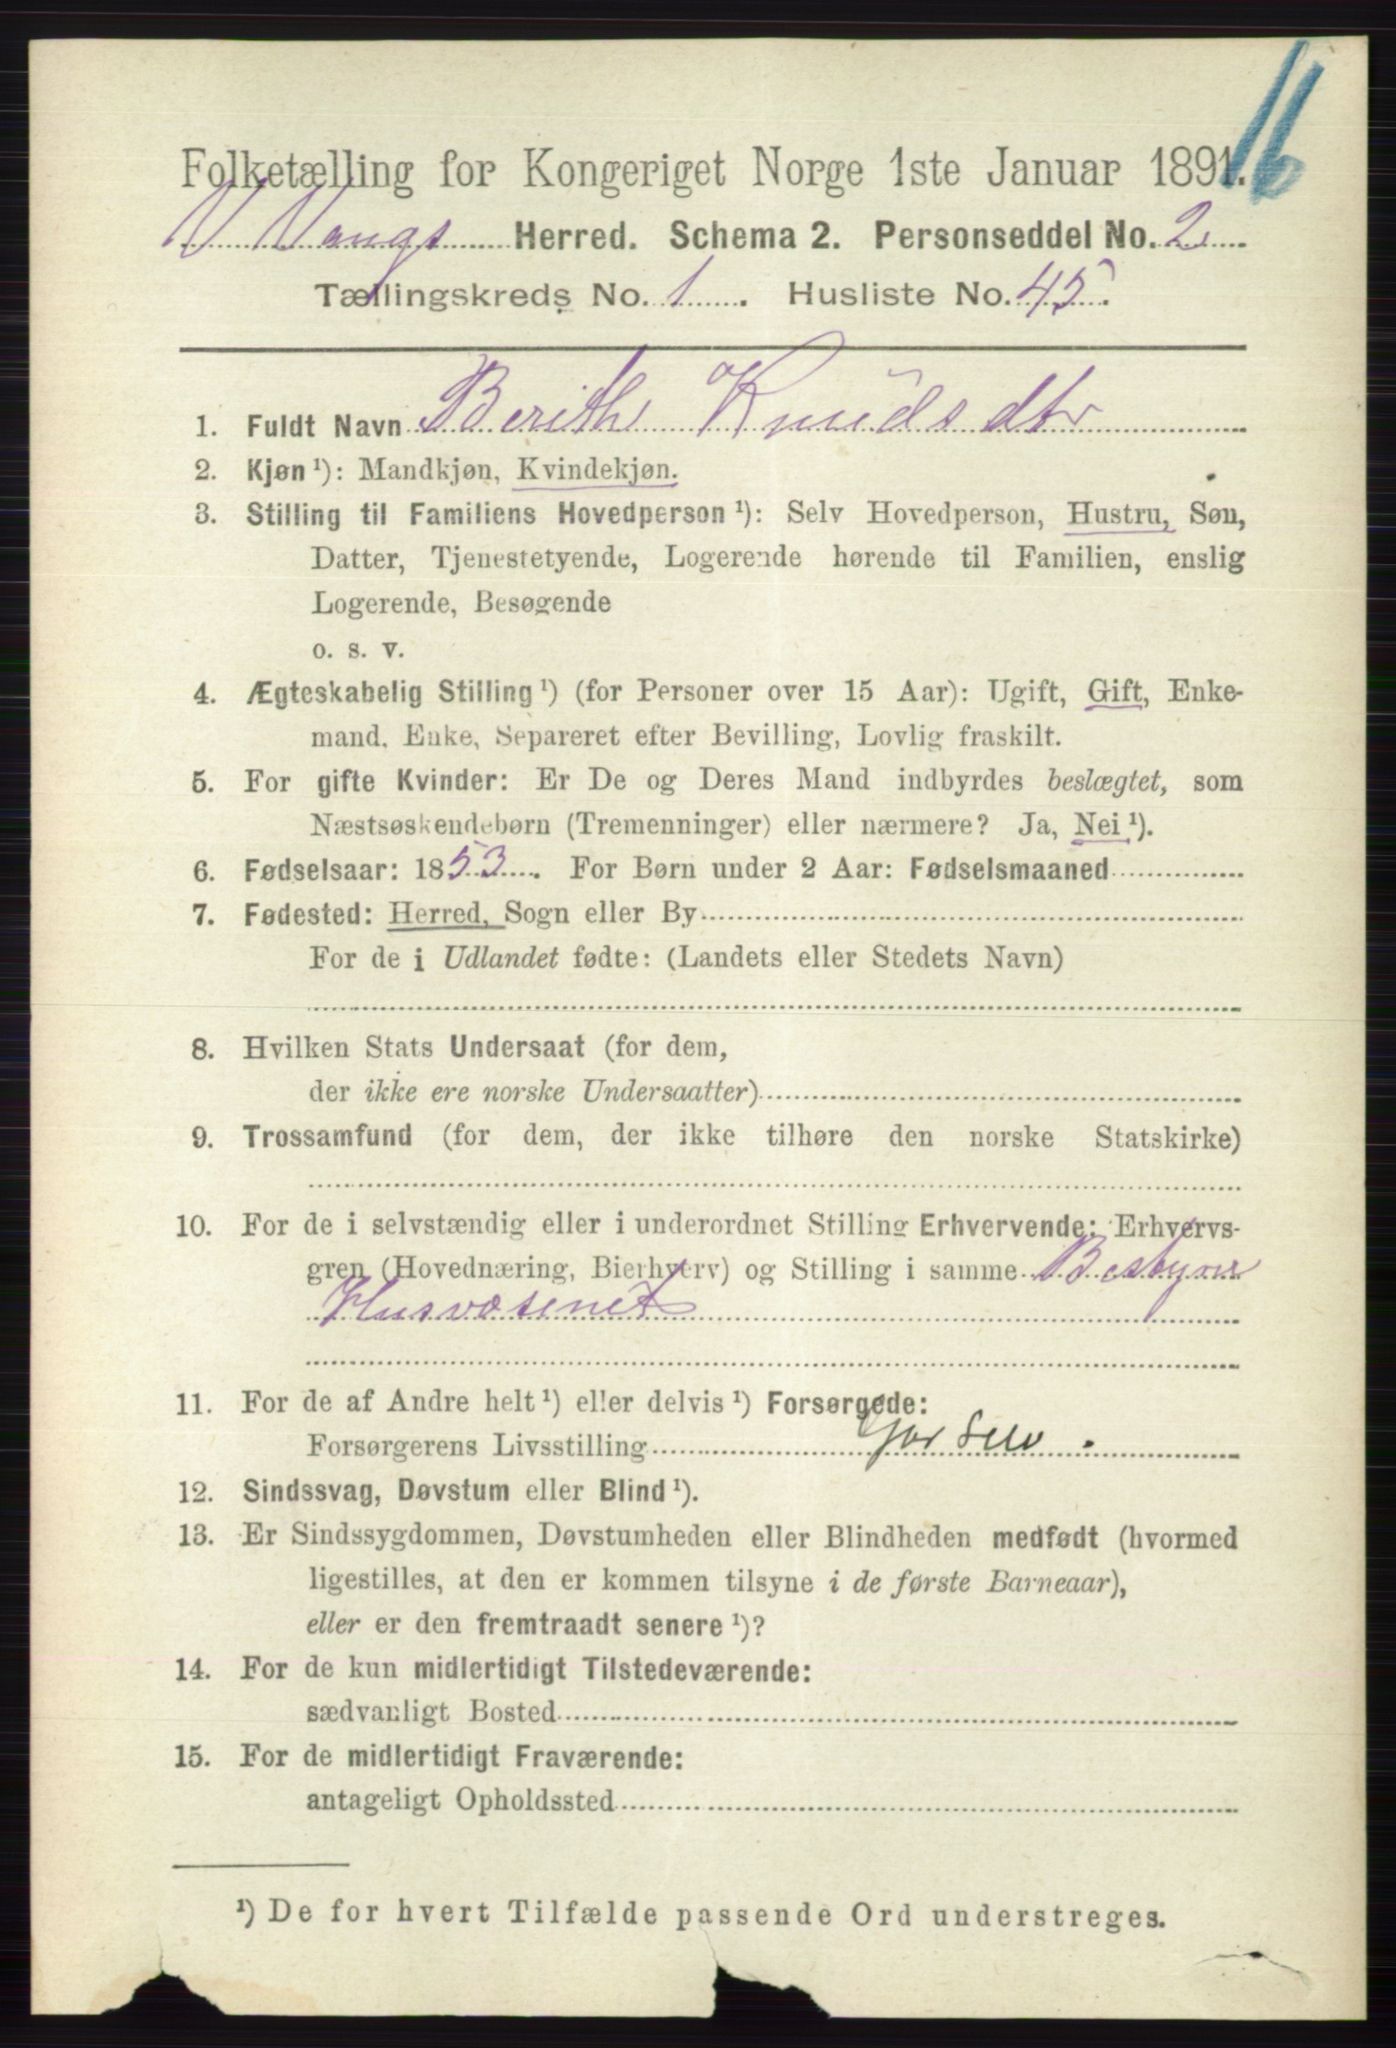 16
Folketælling for Kongeriget Norge 1ste Januar 1891.
V Vangs Herred. Schema 2. Personseddel No. 2
Tællingskreds No. 1. Husliste No. 45.
1. Fuldt Navn Berithe Knudsdtr
2. Kjøn ¹): Mandkjøn, Kvindekjøn.
3. Stilling til Familiens Hovedperson ¹): Selv Hovedperson, Hustru, Søn,
Datter, Tjenestetyende, Logerende hørende til Familien, enslig
Logerende, Besøgende
o. s. v.
4. Ægteskabelig Stilling ¹) (for Personer over 15 Aar): Ugift, Gift, Enke-
mand, Enke, Separeret efter Bevilling, Lovlig fraskilt.
5. For gifte Kvinder: Er De og Deres Mand indbyrdes beslægtet, som
Næstsøskendebørn (Tremenninger) eller nærmere? Ja, Nei ¹).
6. Fødselsaar: 1853. For Børn under 2 Aar: Fødselsmaaned
7. Fødested: Herred, Sogn eller By
For de i Udlandet fødte: (Landets eller Stedets Navn)
8. Hvilken Stats Undersaat (for dem,
der ikke ere norske Undersaatter)
9. Trossamfund (for dem, der ikke tilhøre den norske Statskirke)
10. For de i selvstændig eller i underordnet Stilling Erhvervende: Erhvervs-
gren (Hovednæring, Bierhverv) og Stilling i samme Bestyrer
Husvæsenet
11. For de af Andre helt ¹) eller delvis ¹) Forsørgede:
Forsørgerens Livsstilling
12. Sindssvag, Døvstum eller Blind ¹).
13. Er Sindssygdommen, Døvstumheden eller Blindheden medfødt (hvormed
ligestilles, at den er kommen tilsyne i de første Barneaar),
eller er den fremtraadt senere ¹)?
14. For de kun midlertidigt Tilstedeværende:
sædvanligt Bosted
15. For de midlertidigt Fraværende:
antageligt Opholdssted
¹) De for hvert Tilfælde passende Ord understreges.